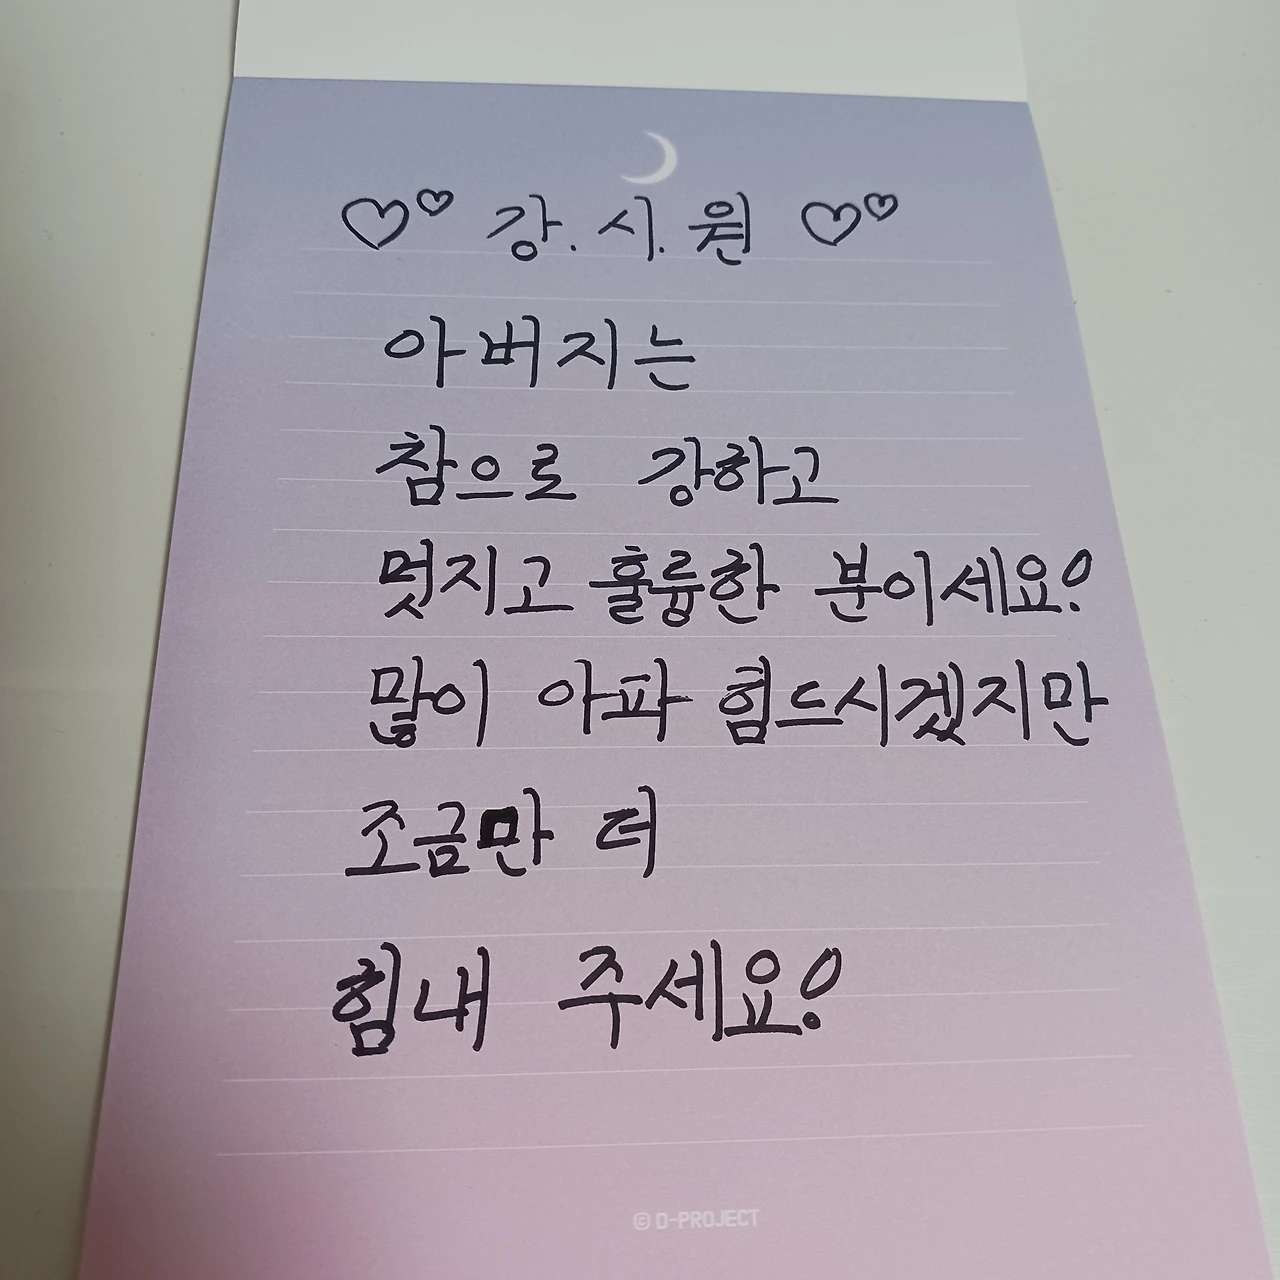 ♡♡ 강.시.원 ♡♡
아버지는
참으로 강하고
멋지고 훌륭한 분이세요!
많이 아파 힘드시겠지만
조금만 더
힘내 주세요!
© D-PROJECT